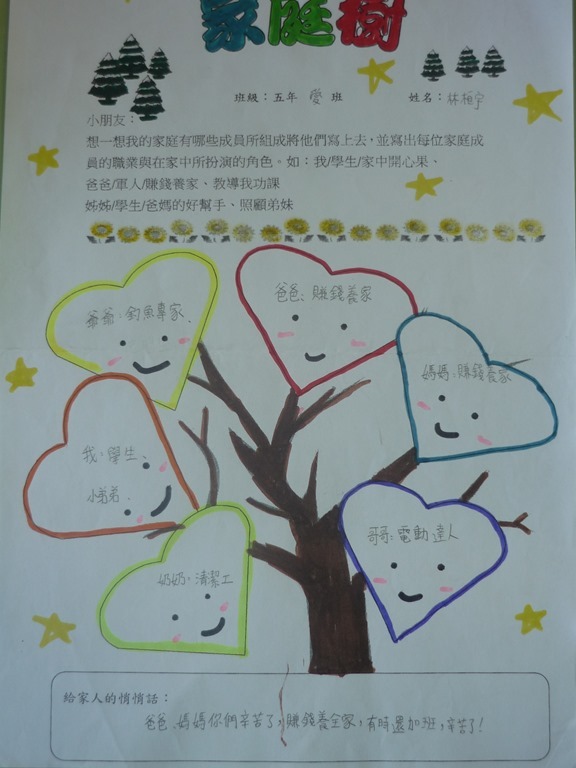 家庭樹
班級：五年 愛 班 姓名：林桓宇
小朋友：
想一想我的家庭有哪些成員所組成將他們寫上去，並寫出每位家庭成
員的職業與在家中所扮演的角色。如：我/學生/家中開心果、
爸爸/軍人/賺錢養家、教導我功課
姊姊/學生/爸媽的好幫手、照顧弟妹
爸爸：賺錢養家
爺爺：釣魚專家.
媽媽：賺錢養家
我：學生、
小弟弟.
哥哥：電動達人
奶奶：清潔工
給家人的悄悄話：
爸爸、媽媽你們辛苦了，賺錢養全家，有時還加班，辛苦了！